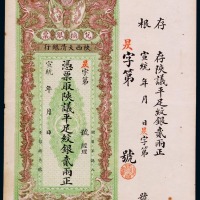 存根
存陝議平足紋銀貳兩正
宣統 年 月 日 字第
字第 號
陝西大清銀行
字第 號 經理
憑票取陝議平足紋銀貳兩正
宣統 年 月 日